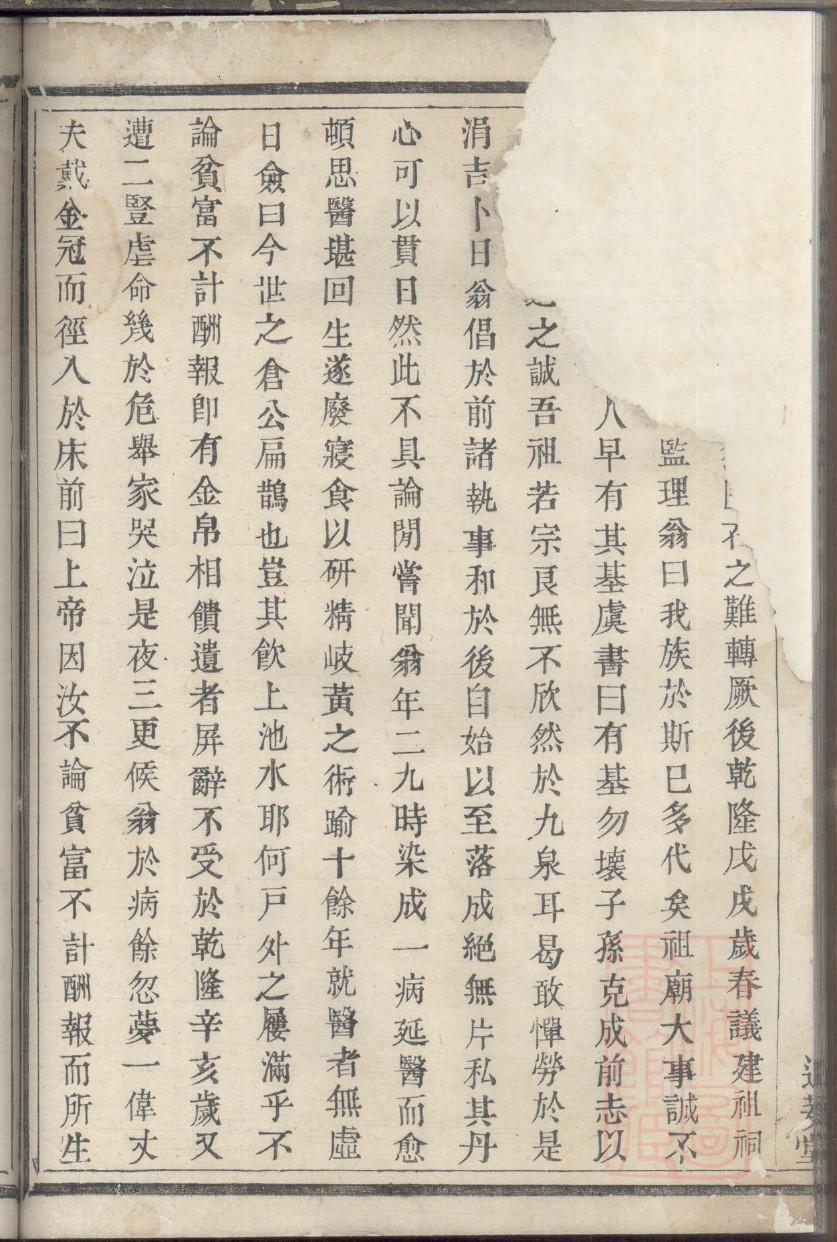 之難轉厥後乾隆戊戌歲春議建祖祠
監理翁曰我族於斯已多代矣祖廟大事誠不
人早有其基虞書曰有基勿壞子孫克成前志以
之誠吾祖若宗良無不欣然於九泉耳曷敢憚勞於是
涓吉卜日翁倡於前諸執事和於後自始以至落成絕無片私其丹
心可以貫日然此不具論閒嘗聞翁年二九時染成一病延醫而愈
頓思醫堪回生遂廢寢食以研精岐黃之術踰十餘年就醫者無虛
日僉曰今世之倉公扁鵲也豈其飲上池水耶何戶外之屨滿乎不
論貧富不計酬報卽有金帛相饋遺者屏辭不受於乾隆辛亥歲又
遭二豎虐命幾於危舉家哭泣是夜三更候翁於病餘忽夢一偉丈
夫戴金冠而徑入於床前曰上帝因汝不論貧富不計酬報而所生